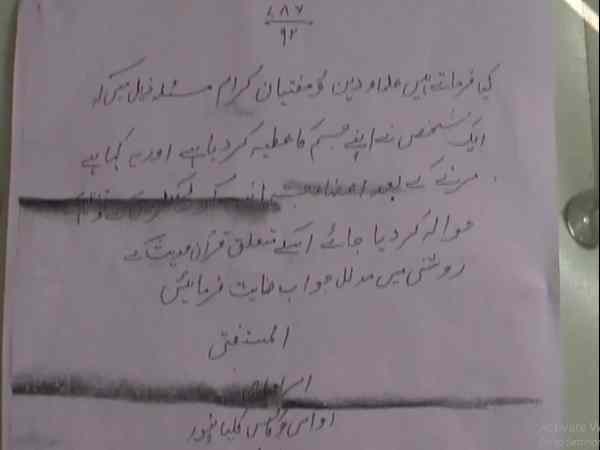 ۷۸۶
۹۲
کیا فرماتے ہیں علماء دین و مفتیان کرام مسئلہ ذیل میں کہ
ایک شخص نے اپنے جسم کا عطیہ کر دیا ہے اور یہ کہا ہے
مرنے کے بعد
حوالہ کر دیا جائے اسکے متعلق قرآن و حدیث کے
روشنی میں مدلل جواب عنایت فرمائیں
المستفتی
کلیانپور
Activate W